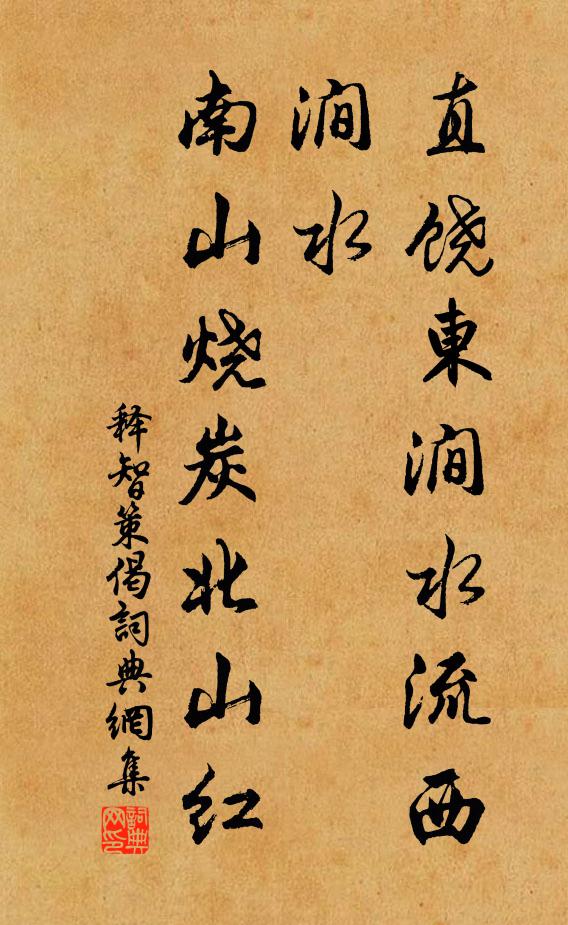 直饶東澗水流西
澗水
南山烧炭北山红
释智策偈詞典網集
詞典网印